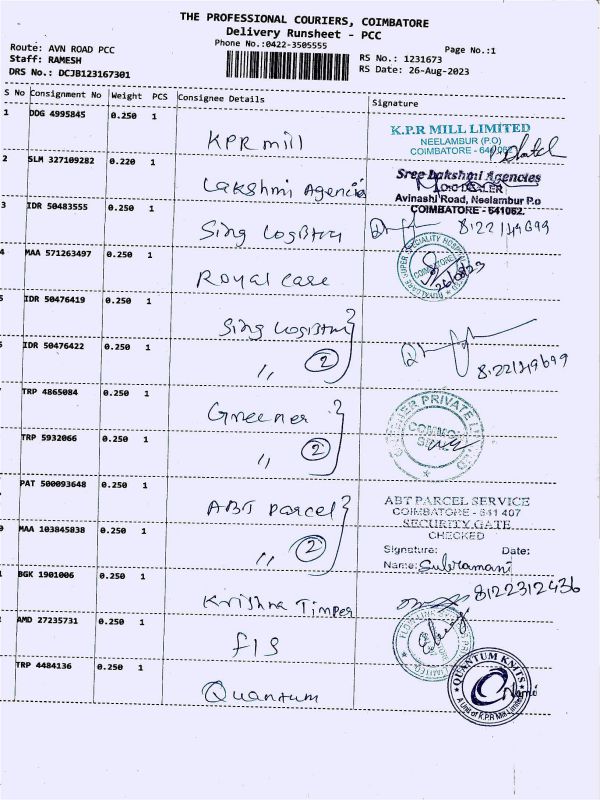 THE PROFESSIONAL COURIERS, COIMBATORE
Delivery Runsheet - PCC
Phone No.:0422-3505555
Page No.:1
Route: AVN ROAD PCC
Staff: RAMESH
DRS No.: DCJB123167301
RS No.: 1231673
RS Date: 26-Aug-2023
S No Consignment No Weight PCS Consignee Details Signature
1 DDG 4995845 0.250 1
KPR mill
K.P.R MILL LIMITED
NEELAMBUR (P.O)
COIMBATORE - 641062
2 SLM 327109282 0.220 1
Lakshmi Agencia
Sree Lakshmi Agencies
Avinashi Road, Neelambur P.o
COIMBATORE - 641062.
3 IDR 50483555 0.250 1
Sing Logistry
4 MAA 571263497 0.250 1
Royal Case
COIMBATORE
26/08/23
IDR 50476419 0.250 1
Sing Logistry
IDR 50476422 0.250 1
" 2
TRP 4865084 0.250 1
Greener
TRP 5932066 0.250 1
" 2
PRIVATE
COMMON
SEAL
PAT 500093648 0.250 1
ABT Parcel
MAA 103845838 0.250 1
" 2
ABT PARCEL SERVICE
COIMBATORE - 641 407
SECURITY GATE
CHECKED
Signature: Date:
Name: Subramani
BGK 1901006 0.250 1
Krishna Timper
8122312436
AMD 27235731 0.250 1
FIS
TRP 4484136 0.250 1
Quantum
QUANTUM KNITS
A Unit of K.P.R Mill Limited